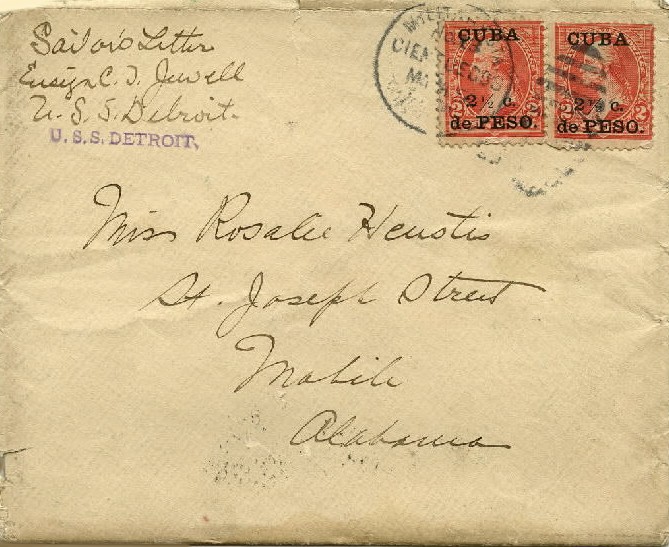 Sailor's Letter
Ensign C. T. Jewell
U. S. S. Detroit.
U. S. S. DETROIT,
CUBA
2½ c.
de PESO.
CUBA
2½ c.
de PESO.
Miss Rosalie Heustis
St. Joseph Street
Mobile
Alabama